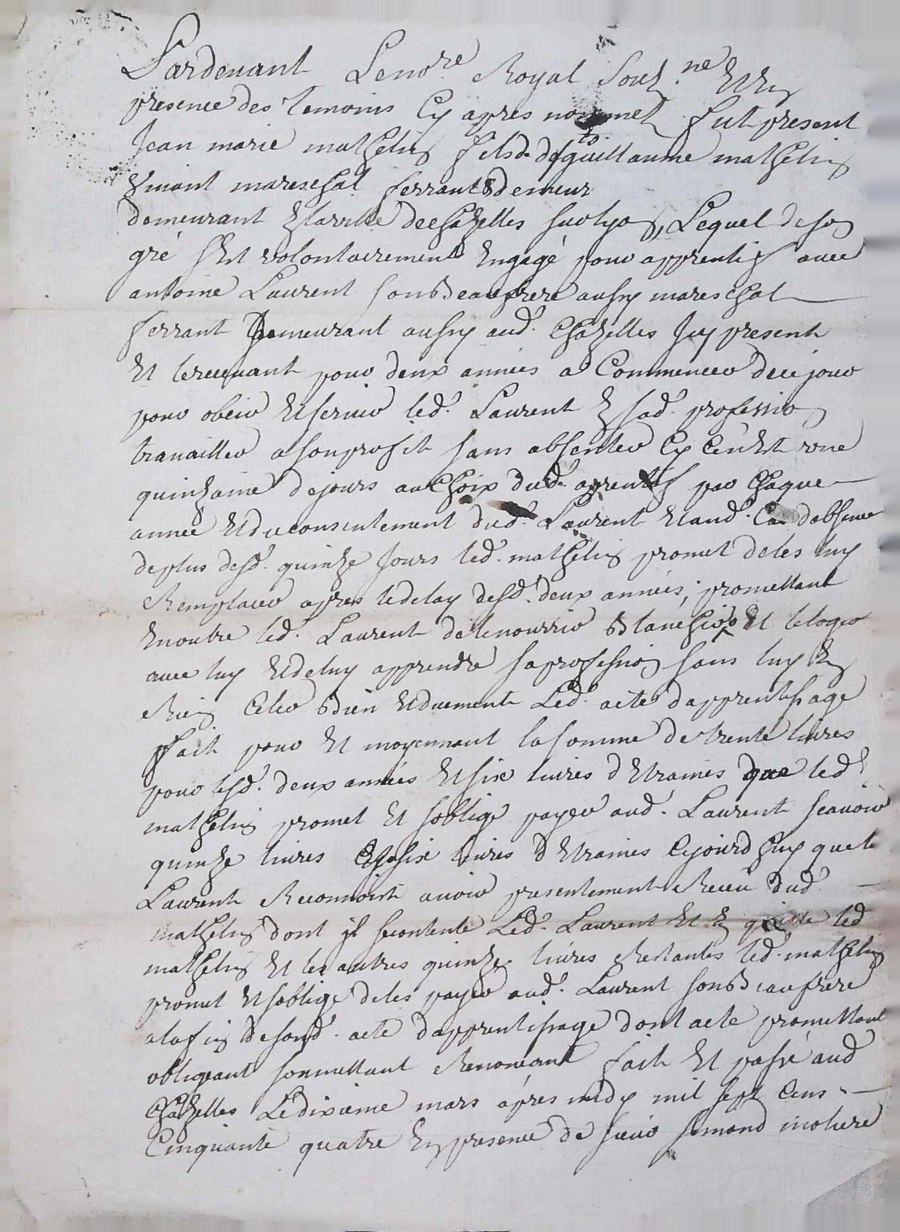 Pardevant Le no.re Royal sous.ne Et En
presence des Temoins Cy apres nommet fut present
Jean marie mathelin fils de d guillaume mathelin
vivant mareschal ferrant & demeur
demeurant Chazelles sur lyon, Lequel de son
gré s'est volontairement Engagé pour apprentif avec
antoine Laurent son Beaufrere ausy mareschal
ferrant Demeurant ausy aud. Chazelles Icy present
Et le recevant pour deux années a Commencer de ce jour
pour obeir Et servir led. Laurent En sad. profession
travailler a son profit sans absenter Ey Ce n'est une
quinzaine de jours au Choix dud. aprentif par Chaque
année Et du consentement dud. Laurent Et aud. Cas d'absence
de plus desd. quinze Jours led. mathelin promet de les luy
Remplacer apres le delay desd. deux années; promettant
En outre led. Laurent de le nourrir Blanchir Et le loger
avec luy Et de luy apprendre sa profession sans luy En
Rien Celer Bien Et duement Led. acte d'apprentissage
fait pour Et moyennant la somme de trente livres
pour lesd. deux années Et six livres d'Etraines que led.
mathelin promet Et s'oblige payer aud. Laurent scavoir
quinze livres Et six livres d'Etraines Cejourd'huy que le
Laurent Reconnoit avoir presentement Receu dud.
mathelin dont il se contente Led. Laurent Et En quitte led
mathelin Et les autres quinze livres Restantes led. mathelin
promet Et s'oblige de les payer aud. Laurent son Beaufrere
a la fin de sond. acte d'apprentissage dont acte promettant
obligeant soumettant Renoncant fait Et passé aud
Chazelles Le dixieme mars apres midy mil sept Cens
Cinquante quatre En presence de sieur simond inoliere